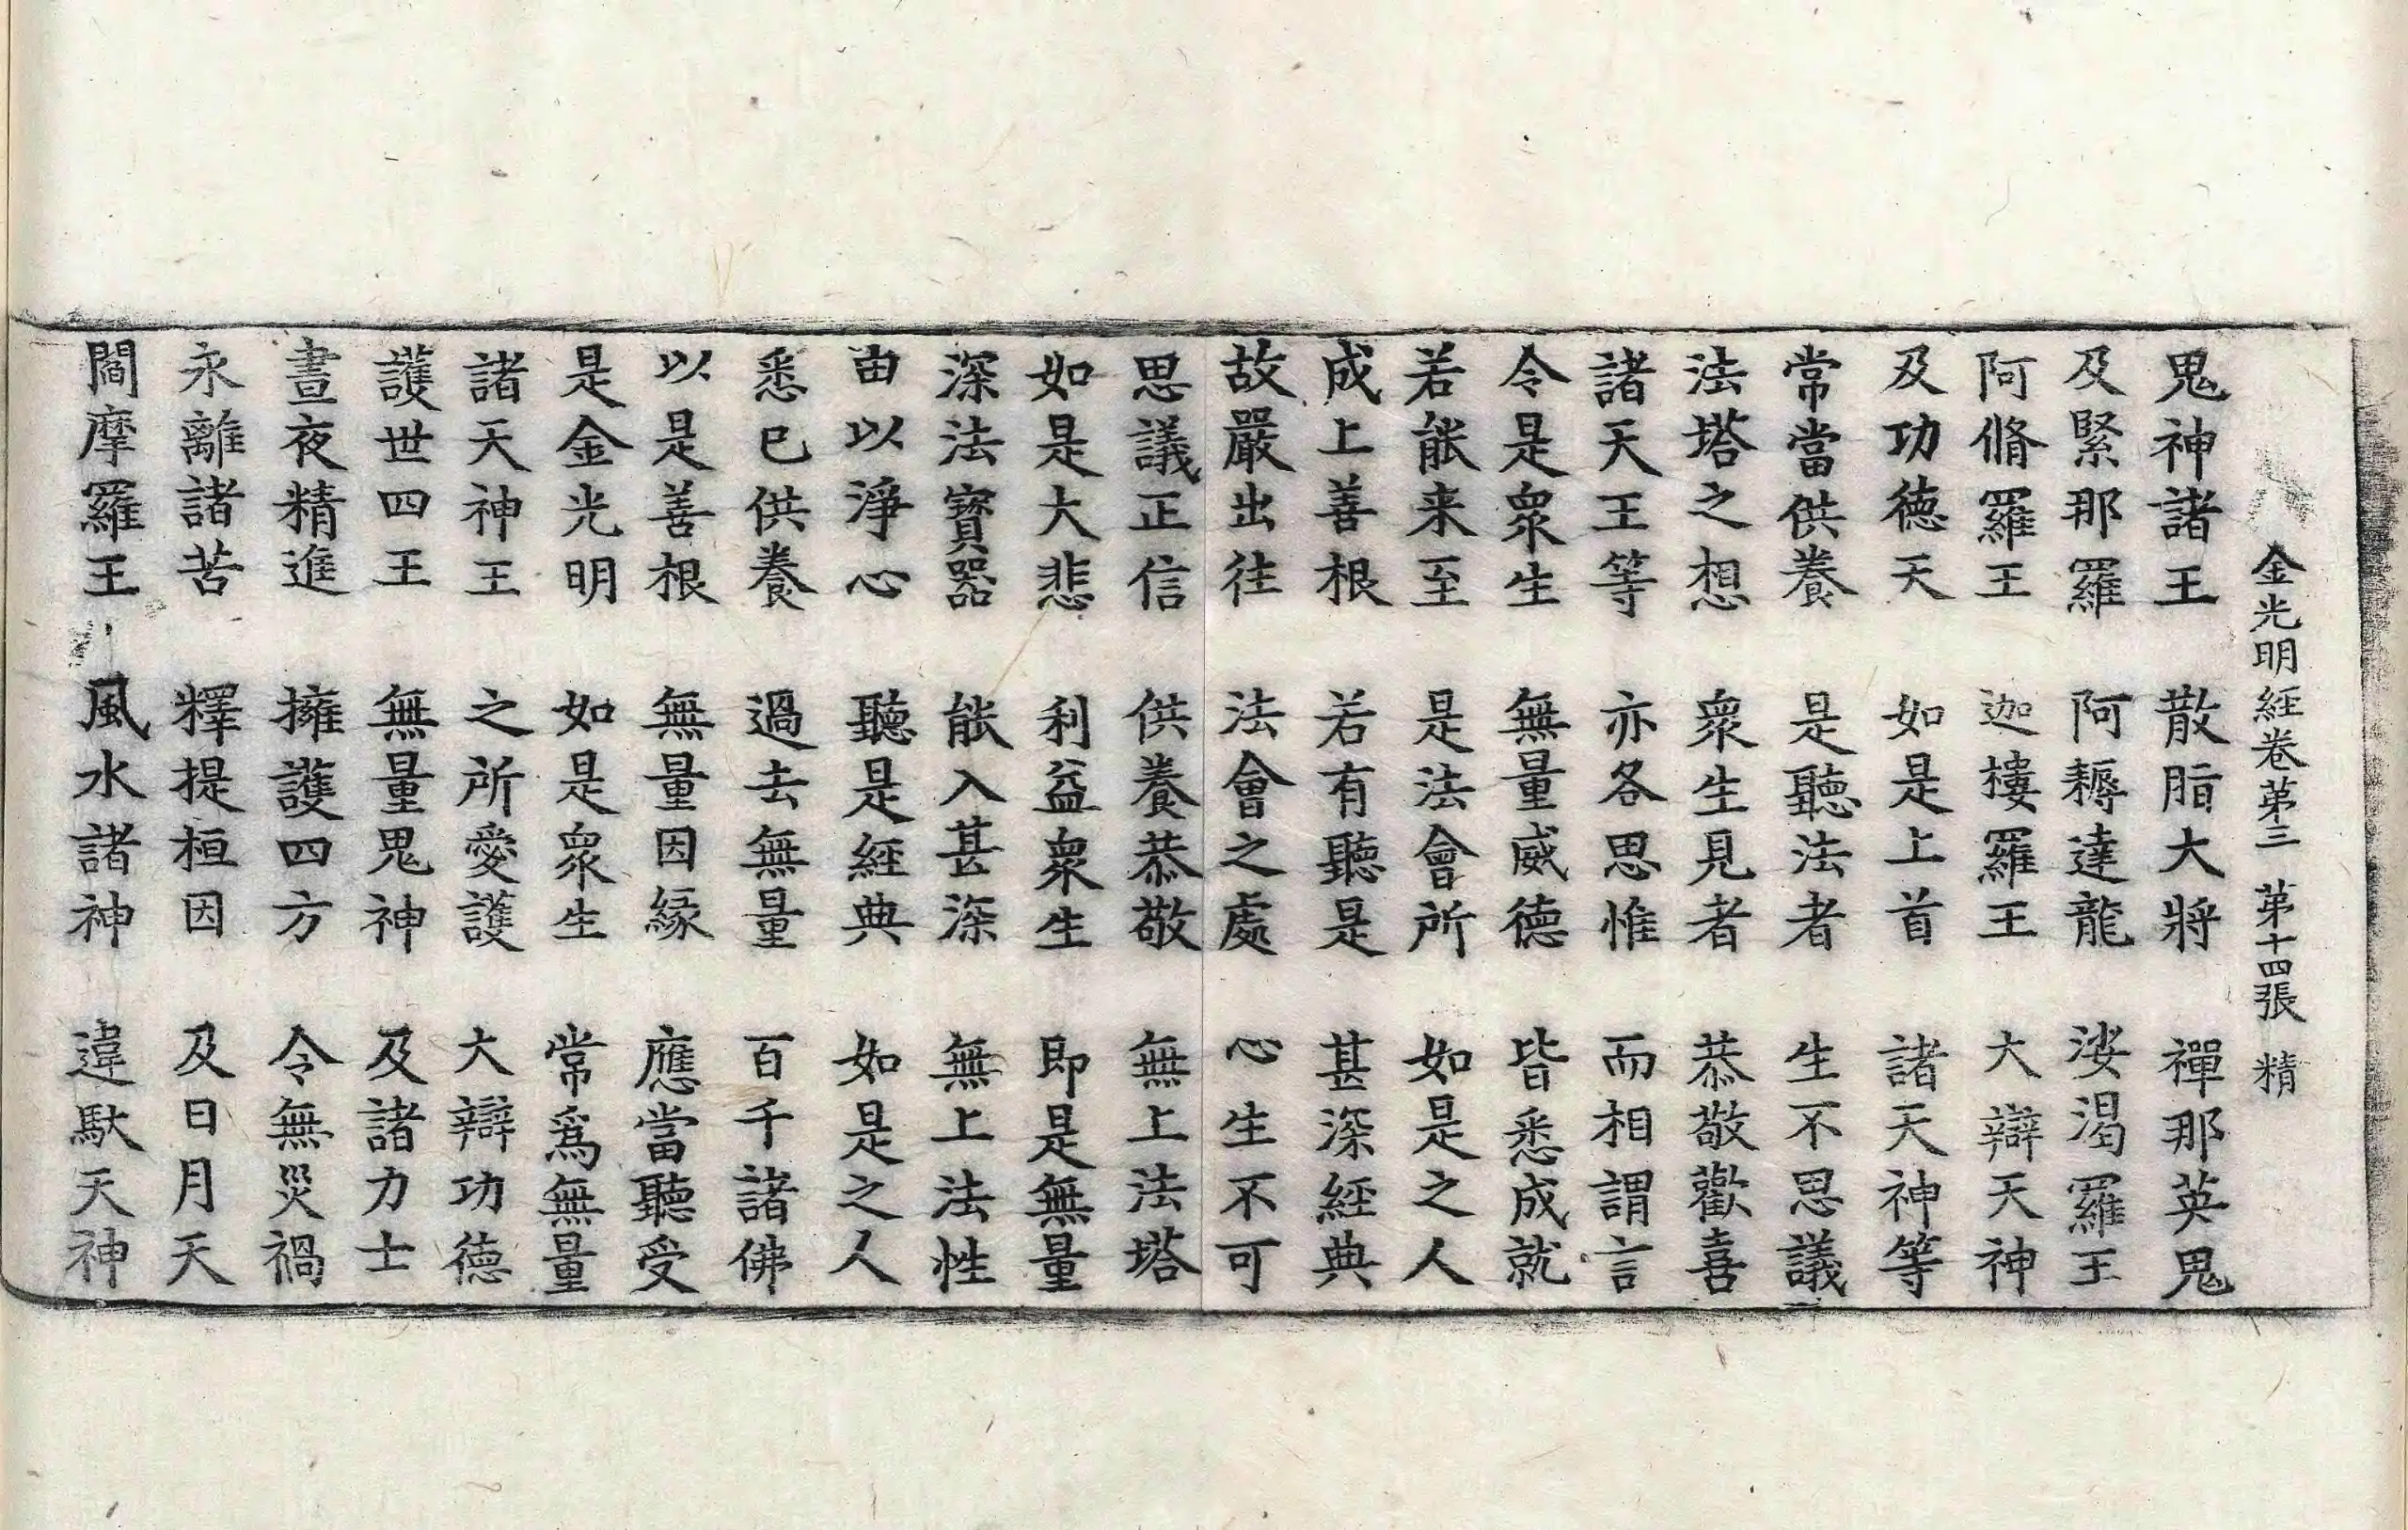 金光明經卷第三 第十四張 精
鬼神諸王 散脂大將 禪那英鬼
及緊那羅 阿耨達龍 娑渴羅王
阿脩羅王 迦樓羅王 大辯天神
及功德天 如是上首 諸天神等
常當供養 是聽法者 生不思議
法塔之想 衆生見者 恭敬歡喜
諸天王等 亦各思惟 而相謂言
令是衆生 無量威德 皆悉成就
若能来至 是法會所 如是之人
成上善根 若有聽是 甚深經典
故嚴出往 法會之處 心生不可
思議正信 供養恭敬 無上法塔
如是大悲 利益衆生 即是無量
深法寶器 能入甚深 無上法性
由以淨心 聽是經典 如是之人
悉已供養 過去無量 百千諸佛
以是善根 無量因緣 應當聽受
是金光明 如是衆生 常爲無量
諸天神王 之所愛護 大辯功德
護世四王 無量鬼神 及諸力士
晝夜精進 擁護四方 令無災禍
永離諸苦 釋提桓因 及日月天
閻摩羅王 風水諸神 違馱天神